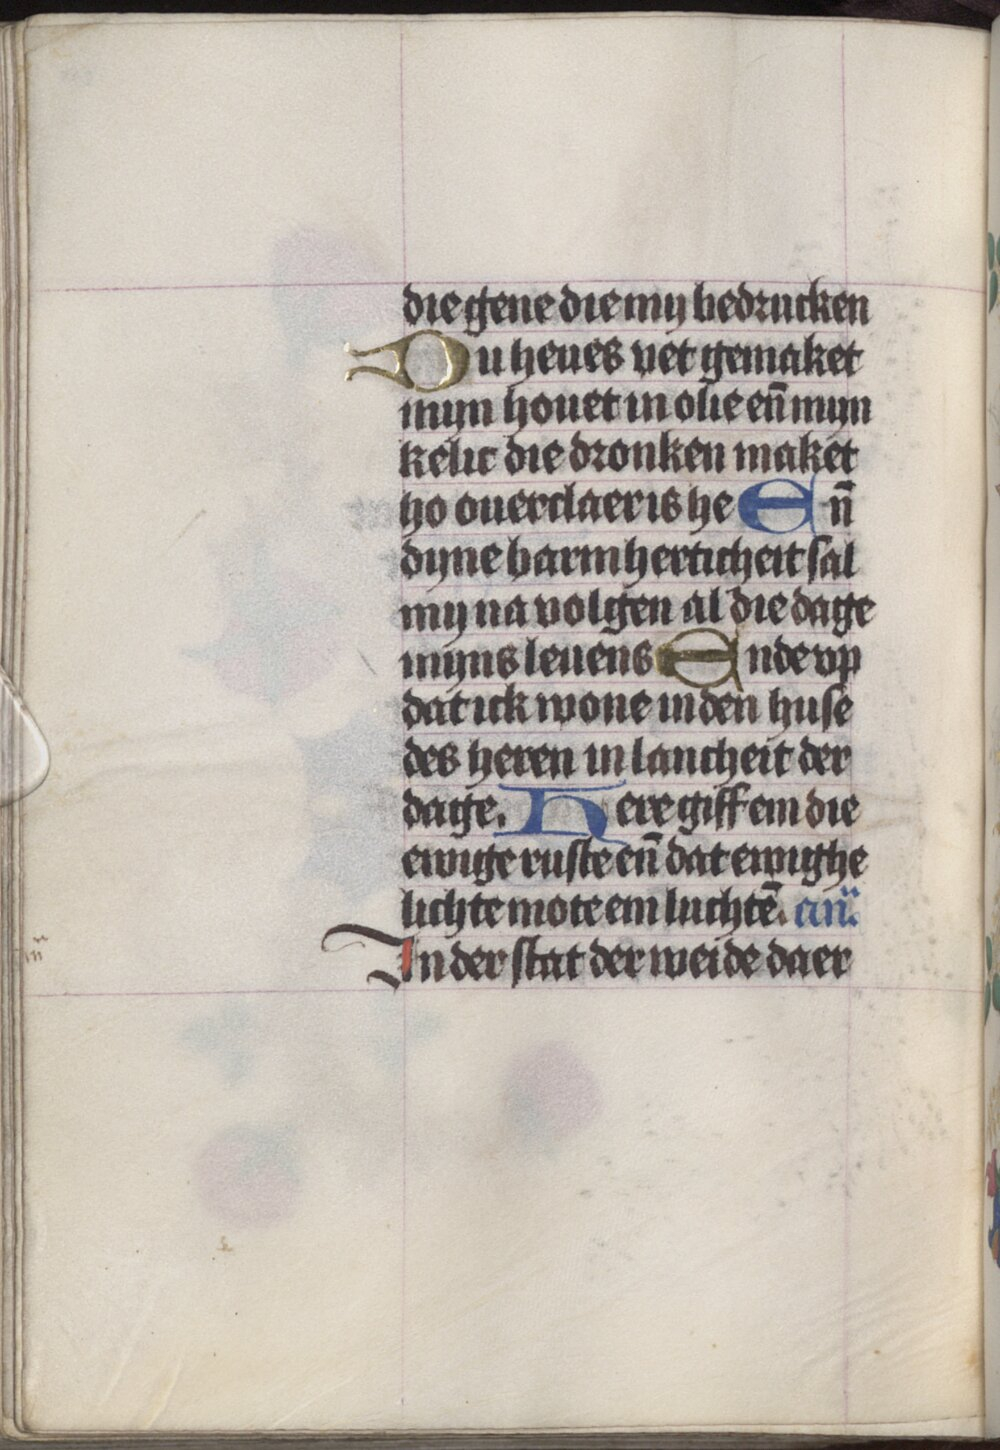 die gene die my bedrucken
Du heues vet gemaket
mijn houet in olie en̄ mijn
kelic die dronken maket
ho ouerclaer is he En̄
dyne barmherticheit sal
my na volgen al die dage
mijns leuens Ende vp
dat ick wone in den huse
des heren in lancheit der
dage. Here giff em die
ewige ruste en̄ dat ewighe
lichte mote em luchtē. an̄.
In der stat der weide daer